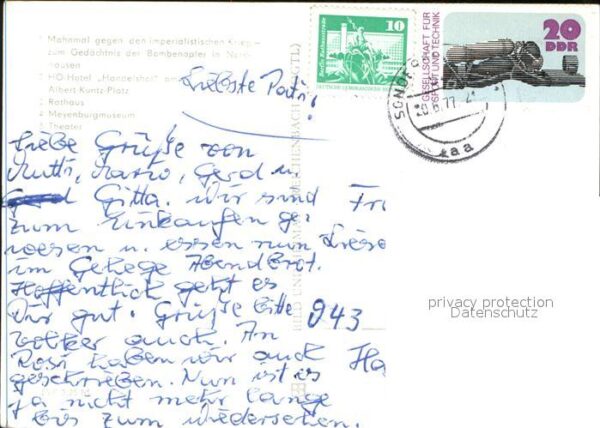 1 Mahnmal gegen den imperialistischen Krieg –
zum Gedächtnis der Bombenopfer in Nord-
hausen
2 HO-Hotel „Handelshof“ am
Albert-Kuntz-Platz
3 Rathaus
4 Meyenburgmuseum
5 Theater
Liebste Pati!
Liebe Grüße von
Mutti, Mario, Gerd u.
Gitta. Wir sind
zum Einkaufen ge
wesen u. essen nun
im Gehege Abendbrot.
Hoffentlich geht es
Dir gut. Grüße bitte
auch. An
Rosi haben wir auch
geschrieben. Nun ist es
ja nicht mehr lange
bis zum Wiedersehen.
Fri
943
Ha
10
DEUTSCHE DEMOKRATISCHE REPUBLIK
GESELLSCHAFT FÜR
SPORT UND TECHNIK
20
DDR
privacy protection
Datenschutz